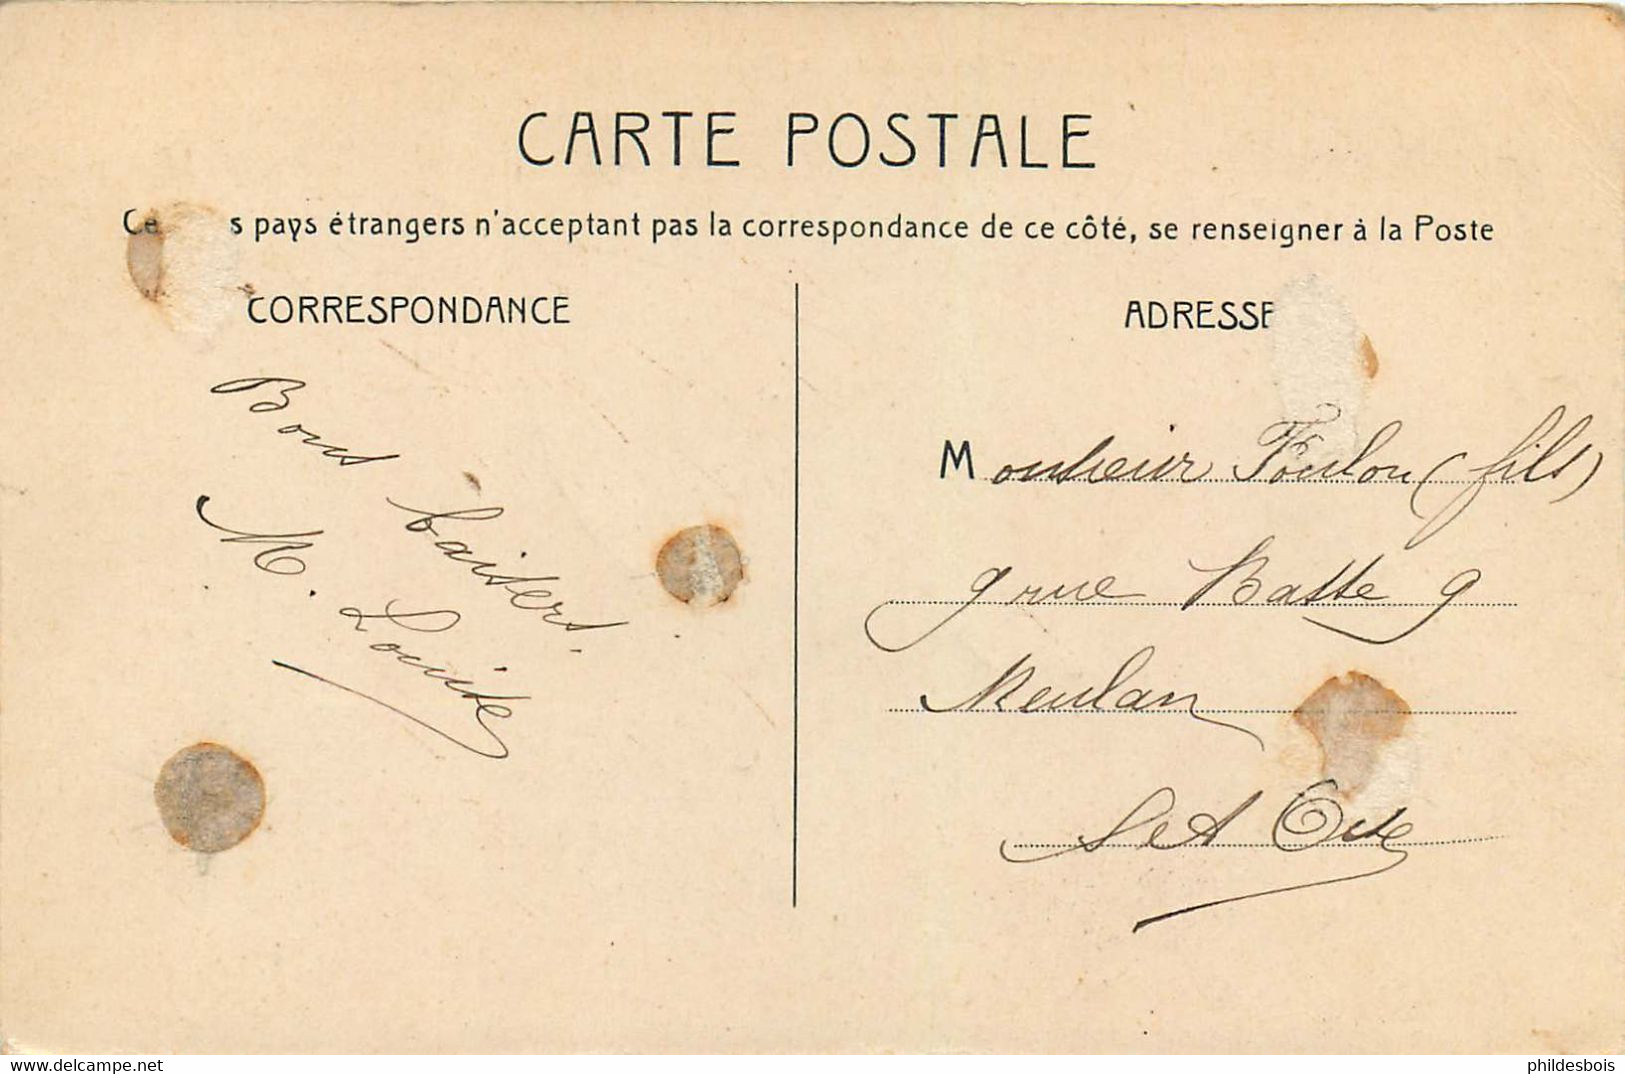 CARTE POSTALE
Ce s pays étrangers n'acceptant pas la correspondance de ce côté, se renseigner à la Poste
CORRESPONDANCE
Bons baisers.
M. Louise
ADRESSE
Monsieur Foulon (fils)
9 rue Basse 9
Meulan
S et Oise
www.delcampe.net
phildesbois